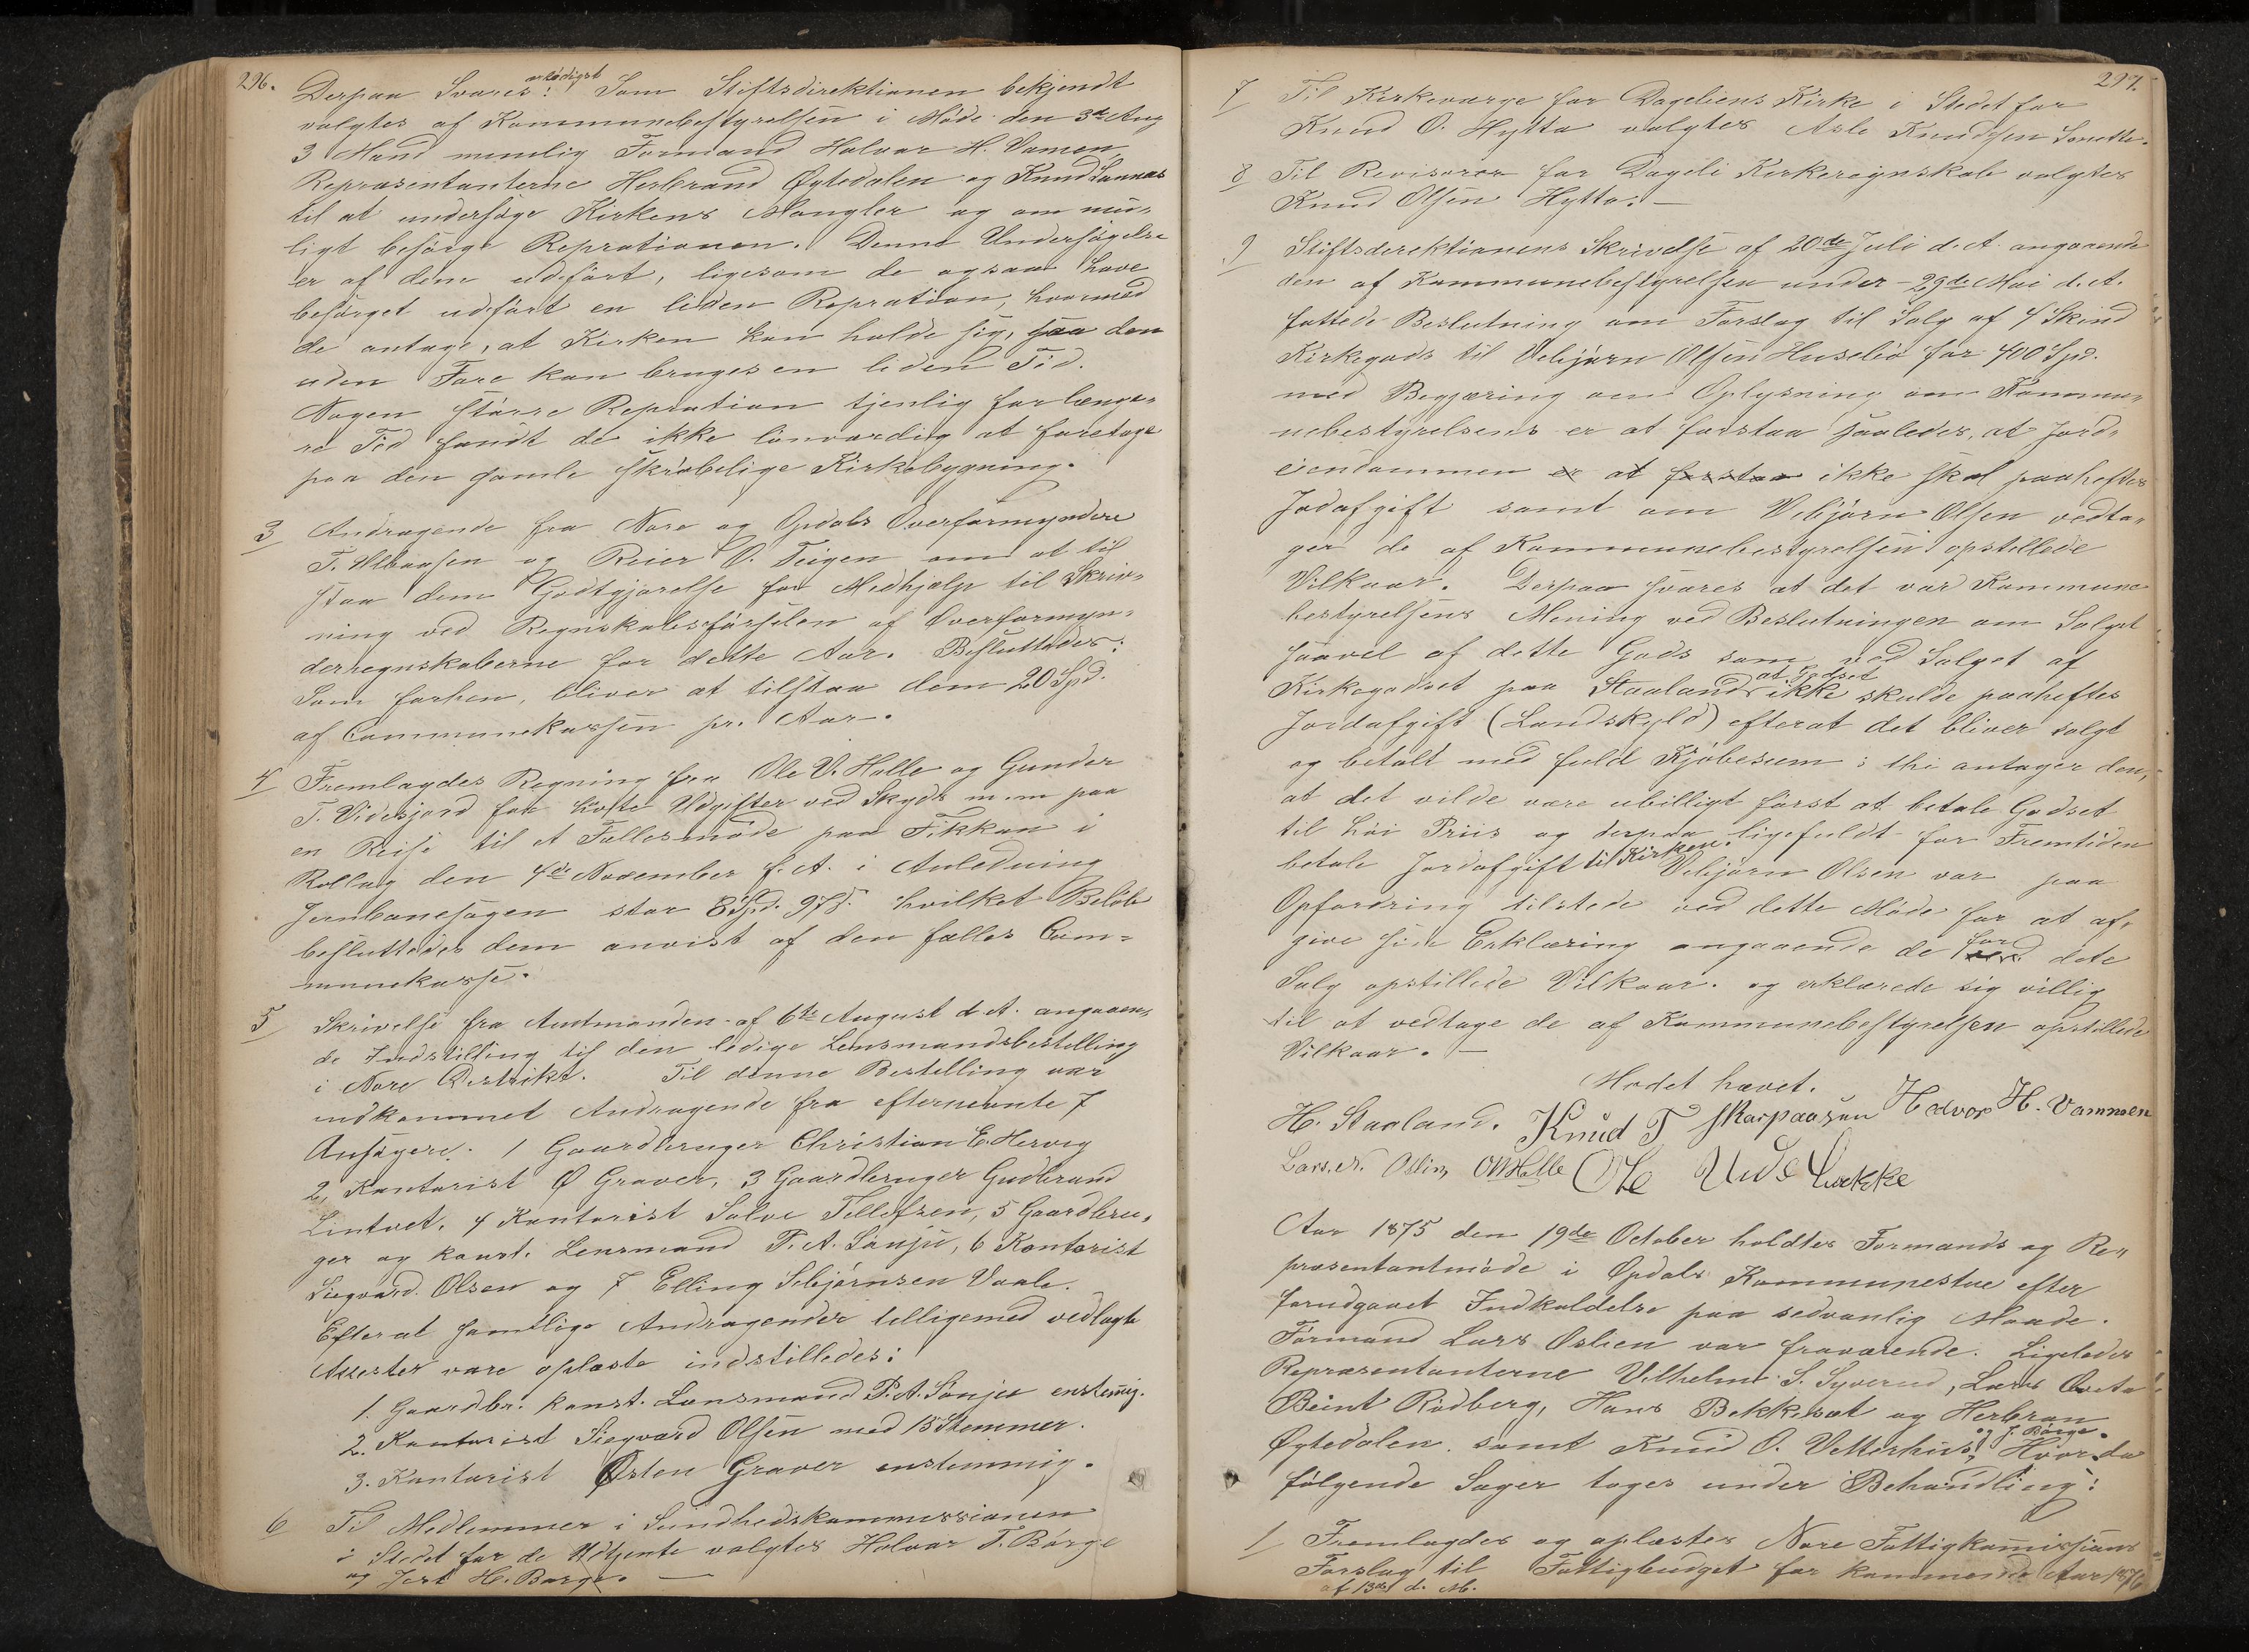 296.
Derpaa Svares: ærbödigst Som Stiftsdirektionen bekjendt
valgtes af Kommunebestyrelsen i Möde den 3de Aug
3 Mand nemlig Formand Halvor H. Vamen
Repræsentanterne Herbrand Øgtedalen og Knud Sønnæs
til at undersöge Kirkens Mangler og om mu-
ligt besörge Reprationen. Denne Undersögelse
er af dem udfört, ligesom de ogsaa have
besörget udfört en liden Repration, hvormed
de antage, at Kirken kan holde sig, saa den
uden Fare kan bruges en liden Tid.
Nogen större Repration tjenlig for længe-
re Tid fandt de ikke lönværdig at foretage
paa den gamle skröbelige Kirkebygning.
3 Andragende fra Nore og Opdals Overformyndere
T. Albaasen og Reier O. Teigen om at til
staa dem Godtgjörelse for Medhjelp til Skriv-
ning ved Regnskabsförselen af Overformyn-
derregnskaberne for dette Aar. Besluttedes:
Som forhen, bliver at tilstaa dem 20 Spd.
af Communekassen pr. Aar.
4 Fremlagdes Regning fra Ole V. Halle og Gunder
T. Videsjord for havte Udgifter ved Skyds m.m paa
en Reise til et Fællesmöde paa Fikkan i
Rollag den 4de November f. A. i Anledning
Jernbanesagen stor 8 Spd. 97 s. hvilket Belöb
besluttedes dem anvist af den fælles Com-
munekasse.
5 Skrivelse fra Amtmanden af 6te August d. A. angaaen-
de Indstilling til den ledige Lensmandsbestilling
i Nore Distrikt. Til denne Bestilling var
indkommet Andragende fra efternevnte 7
Ansögere. 1 Gaardbruger Christian E. Hervig
2, Kontorist Ø Graver, 3 Gaardbruger Gudbrand
Lintvet, 4 Kontorist Salve Tellefsen, 5 Gaardbru-
ger og konst. Lensmand P. A. Sönju, 6 Kontorist
Siegvard Olsen og 7 Elling Sebjörnsen Vaale.
Efter at samtlige Andragender telligemed vedlagte
Attester vare oplæste indstilledes:
1. Gaardbr. konst. Lensmand P. A. Sönju enstemig.
2. Kontorist Siegvard Olsen med 15 Stemmer.
3. Kontorist Østen Graver enstemmig.
6 Til Medlemmer i Sundhedskommissionen
i Stedet for de Udtjente valgtes Halvor T. Börge
og Jert H. Borge. —
297.
7 Til Kirkeværge for Dageliens Kirke i Stedet for
Knud O. Hytta valgtes Asle Knudsen Sonette.
8 Til Revisorer for Dageli Kirkeregnskab valgtes
Knud Olsen Hytta. —
9 Stiftsderektionens Skrivelse af 20de Juli d. A. angaaende
den af Kommunebestyrelsen under 29de Mai d. A.
fattede Beslutning om Forslag til Salg af 4 Skind
Kirkegods til Vebjørn Olsen Husebö for 400 Spd.
med Begjæring om Oplysning om Kommu-
nebestyrelsens er at forstaa saaledes, at Jord-
eiendommen er at forstaa ikke skal paaheftes
Jodafgift samt om Vebjørn Olsen vedta-
ger de af Kommunebestyrelsen opstillede
Vilkaar. Derpaa svares at det var Kommune
bestyrelsens Mening ved Beslutningen om Salget
saavel af dette Gods som ved Salget af
Kirkegodset paa Staaland at Godset ikke skulde paaheftes
Jordafgift (Landskyld) efterat det bliver solgt
og betalt med fuld Kjöbesum; thi antager den,
at det vilde være ubilligt först at betale Godset
til höi Priis og derpaa ligefuldt for Fremtiden
betale Jordafgift til Kirken. Vebjörn Olsen var paa
Opfordring tilstede ved dette Möde for at af-
give sin Erklæring angaaende de for ved dete
Salg opstillede Vilkaar. og erklærede sig villig
til at vedtage de af Kommunebestyrelsen opstillede
Vilkaar. —
Modet hævet.
H. Staaland. Knud T Skarpaasen Halvor H. Vammen
Lars. N. Øslien OVHalle Ole Ude Løkke
Aar 1875 den 19de October holdtes Formands og Re-
præsentantmöde i Opdals Kommunestue efter
forudgaaet Indkaldelse paa sedvanlig Maade.
Formand Lars Øslien var fraværende. Ligeledes
Repræsentanterne Vilhelm S. Syverud, Lars Qveta
Beint Rödberg, Hans Bekkeset og Herbran
Øgtedalen. samt Knud O. Vetterhus, og J. Börge. Hvor da
fölgende Sager toges under Behandling:
1 Fremlagdes og oplæstes Nore Fattigkomissions
Forslag til Fattigbudget for kommende Aar 1876
af 13de d. M.